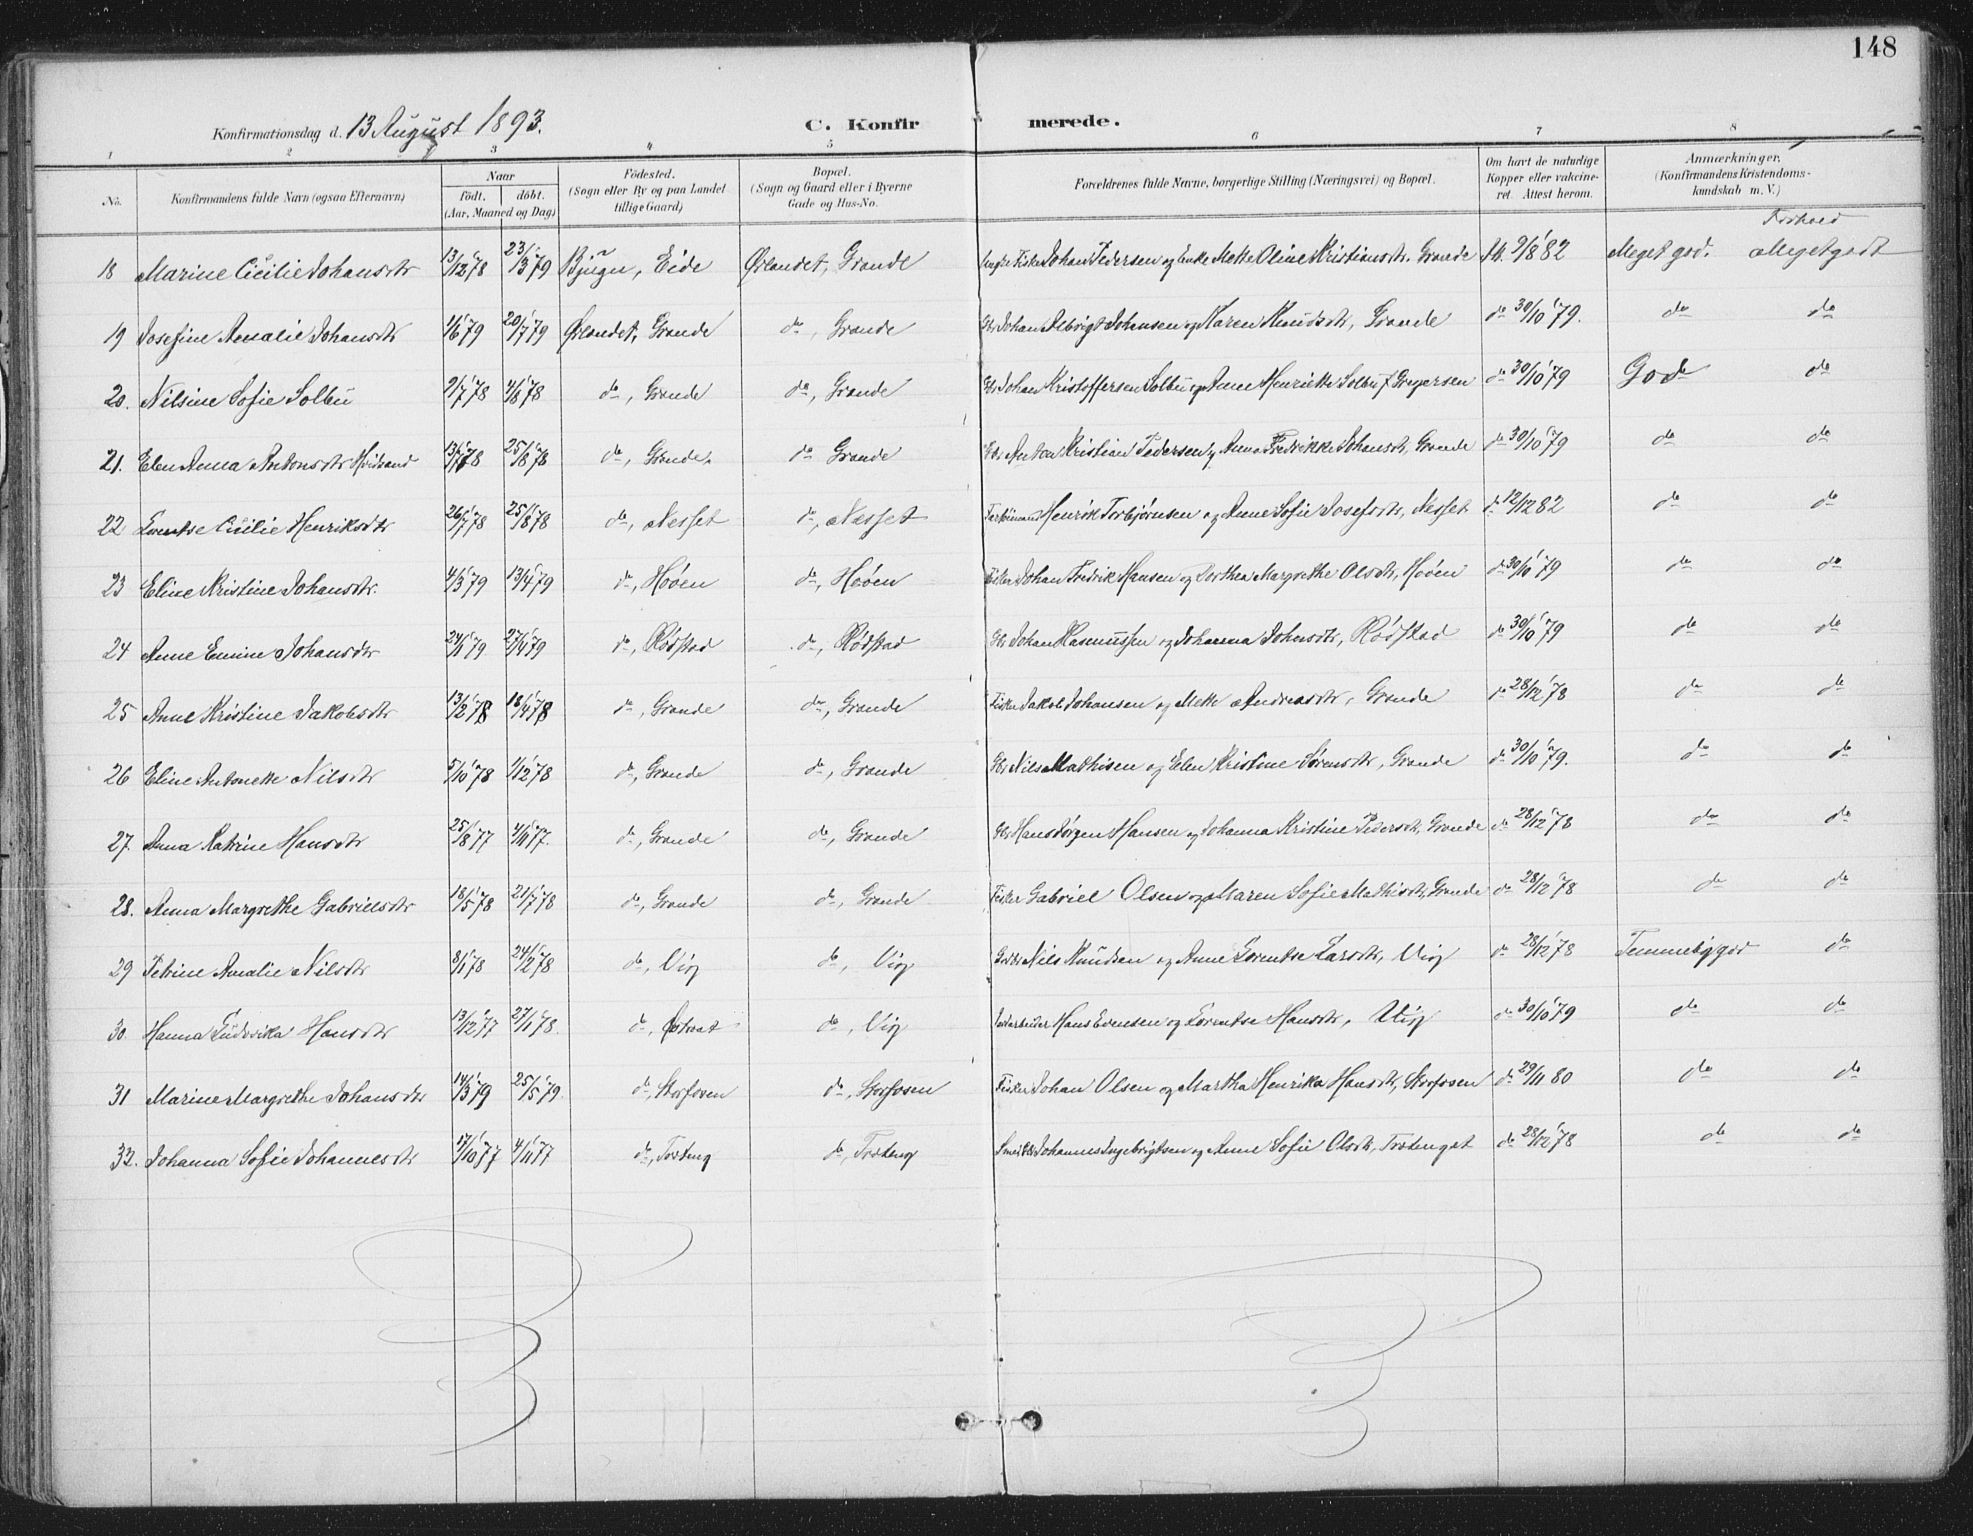 148
Konfirmationsdag d. 13 August 1893. C. Konfirmerede.
1 2 3 4 5 6 7 8
No. Konfirmandens fulde Navn (ogsaa Efternavn) Naar født. døbt. (Aar, Maaned og Dag) Fødested. (Sogn eller By og paa Landet tillige Gaard) Bopæl. (Sogn og Gaard eller i Byerne Gade og Hus-No. Forældrenes fulde Navne, borgerlige Stilling (Næringsvei) og Bopæl. Om havt de naturlige Kopper eller vakcineret. Attest herom. Anmærkninger. (Konfirmandens Kristendomskundskab m. V.)
Forhold
18 Marine Cicilie Johansdtr 13/12 78 23/3 79 Bjugn, Eide Ørlandet, Grande Johan Pedersen og Enke Mette Oline Kristiansdtr. Grande 9/8 82 Meget god. Meget godt
19 Josefine Amalie Johansdtr 1/6 79 20/7 79 Ørlandet, Grande do, Grande Johan Albrigt Johansen og Karen Knudsdtr, Grande do 30/10 79. do do
20. Nilsine Sofie Solbu 9/7 78 4/8 78 do, Grande do, Grande Johan Kristoffersen Solbu og Anne Henrikke Solbu f Gregersen do 30/10 79 God do
21. Elen Anna Antonsdtr 13/7 78 25/8 78 do, Grande. do Grande Anton Kristian Pedersen og Anna Fredrikke Johansdtr, Grande do 30/10 79 do do
22 Lorentse Cicilie Henriksdtr 26/7 78 25/8 78 do, Nesset do, Nesset Henrik Torbjørnsen og Anne Sofie Josefsdtr, Nesset do 12/12 82 do do
23 Eline Kristine Johansdtr. 4/3 79 13/4 79 do, Hoøen do, Hoøen Fisker Johan Fredrik Hansen og Dorthea Margrethe Olsdtr, Hoøen do 30/10 79 do do
24 Anne Emine Johansdtr 24/1 79 27/4 79 do, Rødstad do, Rødstad Johan Rasmussen og Johanna Johnsdtr, Rødstad do 30/10 79 do do
25 Anne Kristine Jakobsdtr 13/2 78 18/4 78 do, Grande do, Grande Fisker Jakob Johansen og Mette Andreasdtr, Grande do 28/12 78 do do
26 Eline Antonette Nilsdtr 5/10 78 1/12 78 do, Grande do, Grande Nils Mathisen og Elen Kristine Sørensdtr, Grande do 30/10 79. do do
27. Anna Katrine Hansdtr 25/8 77 4/11 77. do, Grande do, Grande Hans Jørgen Hansen og Johanna Kristine Pedersdtr, Grande do 28/12 78 do do
28. Anna Margrethe Gabrielsdtr 18/5 78 21/7 78 do, Grande do, Grande Fisker Gabriel Olsen og Maren Sofie Mathisdtr, Grande do 28/12 78 do do
29 Petrine Amalie Nilsdtr 8/1 78 24/2 78 do, Viig do, Viig Nils Knudsen og Anne Lorentse Larsdtr, Viig do 28/12 78 Temmelig god do
30. Hanna Ludovika Hansdtr 13/12 77 27/1 78. do, Østraat do, Viig Hans Evensen og Lorentse Hansdtr, Viig do 30/10 79 do do
31 Marine Margrethe Johansdtr 14/3 79 25/5 79. do, Storfosen do, Storfosen Fisker Johan Olsen og Martha Henrika Hansdtr, Storfosen do 29/11 80 do do
32. Johanna Sofie Johannesdtr 17/10 77 4/11 77 do, Trøteng do, Trøteng Johannes Ingebrigtsen og Anne Sofie Olsdtr, Trøtenget do 28/12 78 do do